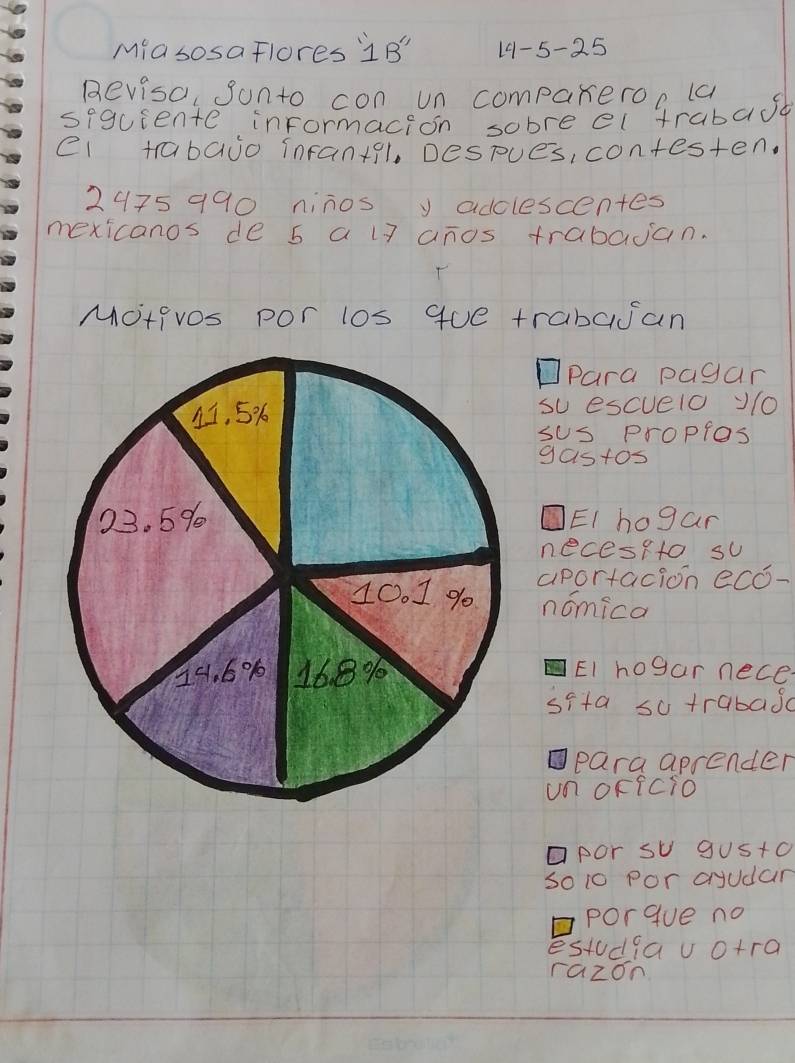 Mia sosa Flores "1B" 14-5-25
Revisa, Junto con un compañero, la
siguiente información sobre el trabajo
el trabajo infantil. Despues, contesten.
2475 990 niños y adolescentes
mexicanos de 5 a 17 años trabajan.
Motivos por los que trabajan
11.5%
23.5%
10.1 %
14.6%
16.8%
Para pagar
su escuela y/o
sus propios
gastos
El hogar
necesita su
aportacion ecó-
nómica
El hogar nece-
sita su trabajo
para aprender
un oficio
por su gusto
solo por ayudar
porque no
estudia u otra
razón
Estrella